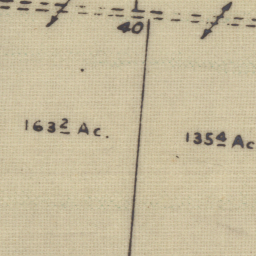 40
163² Ac.
135⁴ Ac